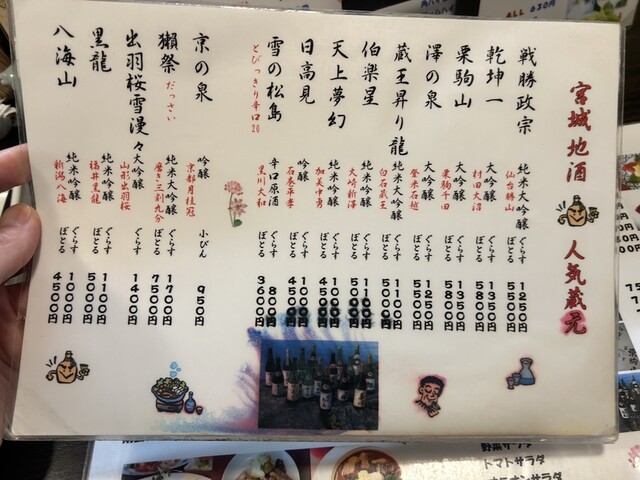 宮城地酒
人気蔵元
戦勝政宗
純米大吟醸
仙台勝山
ぐらす
ぼとる
1250円
5500円
乾坤一
大吟醸
村田大沼
ぐらす
ぼとる
1350円
5800円
栗駒山
大吟醸
栗駒千田
ぐらす
ぼとる
1300円
5800円
澤の泉
大吟醸
登米石越
ぐらす
ぼとる
1250円
5500円
蔵王昇り龍
純米大吟醸
白石蔵王
ぐらす
ぼとる
1100円
5000円
伯楽星
純米吟醸
大崎新澤
ぐらす
ぼとる
天上夢幻
純米吟醸
加美中勇
ぐらす
ぼとる
日高見
吟醸
石巻平孝
ぐらす
ぼとる
雪の松島
とびっきり辛口20
辛口原酒
黒川大和
ぐらす
ぼとる
800円
3600円
京の泉
吟醸
京都月桂冠
小びん
950円
獺祭
だっさい
純米大吟醸
磨き三割九分
ぐらす
ぼとる
1700円
7500円
出羽桜雪漫々
大吟醸
山形出羽桜
ぐらす
ぼとる
1400円
黒龍
純米吟醸
福井黒龍
ぐらす
ぼとる
1100円
5000円
八海山
純米吟醸
新潟八海
ぐらす
ぼとる
1000円
4500円
ALL 630円
野菜サラダ
トマトサラダ